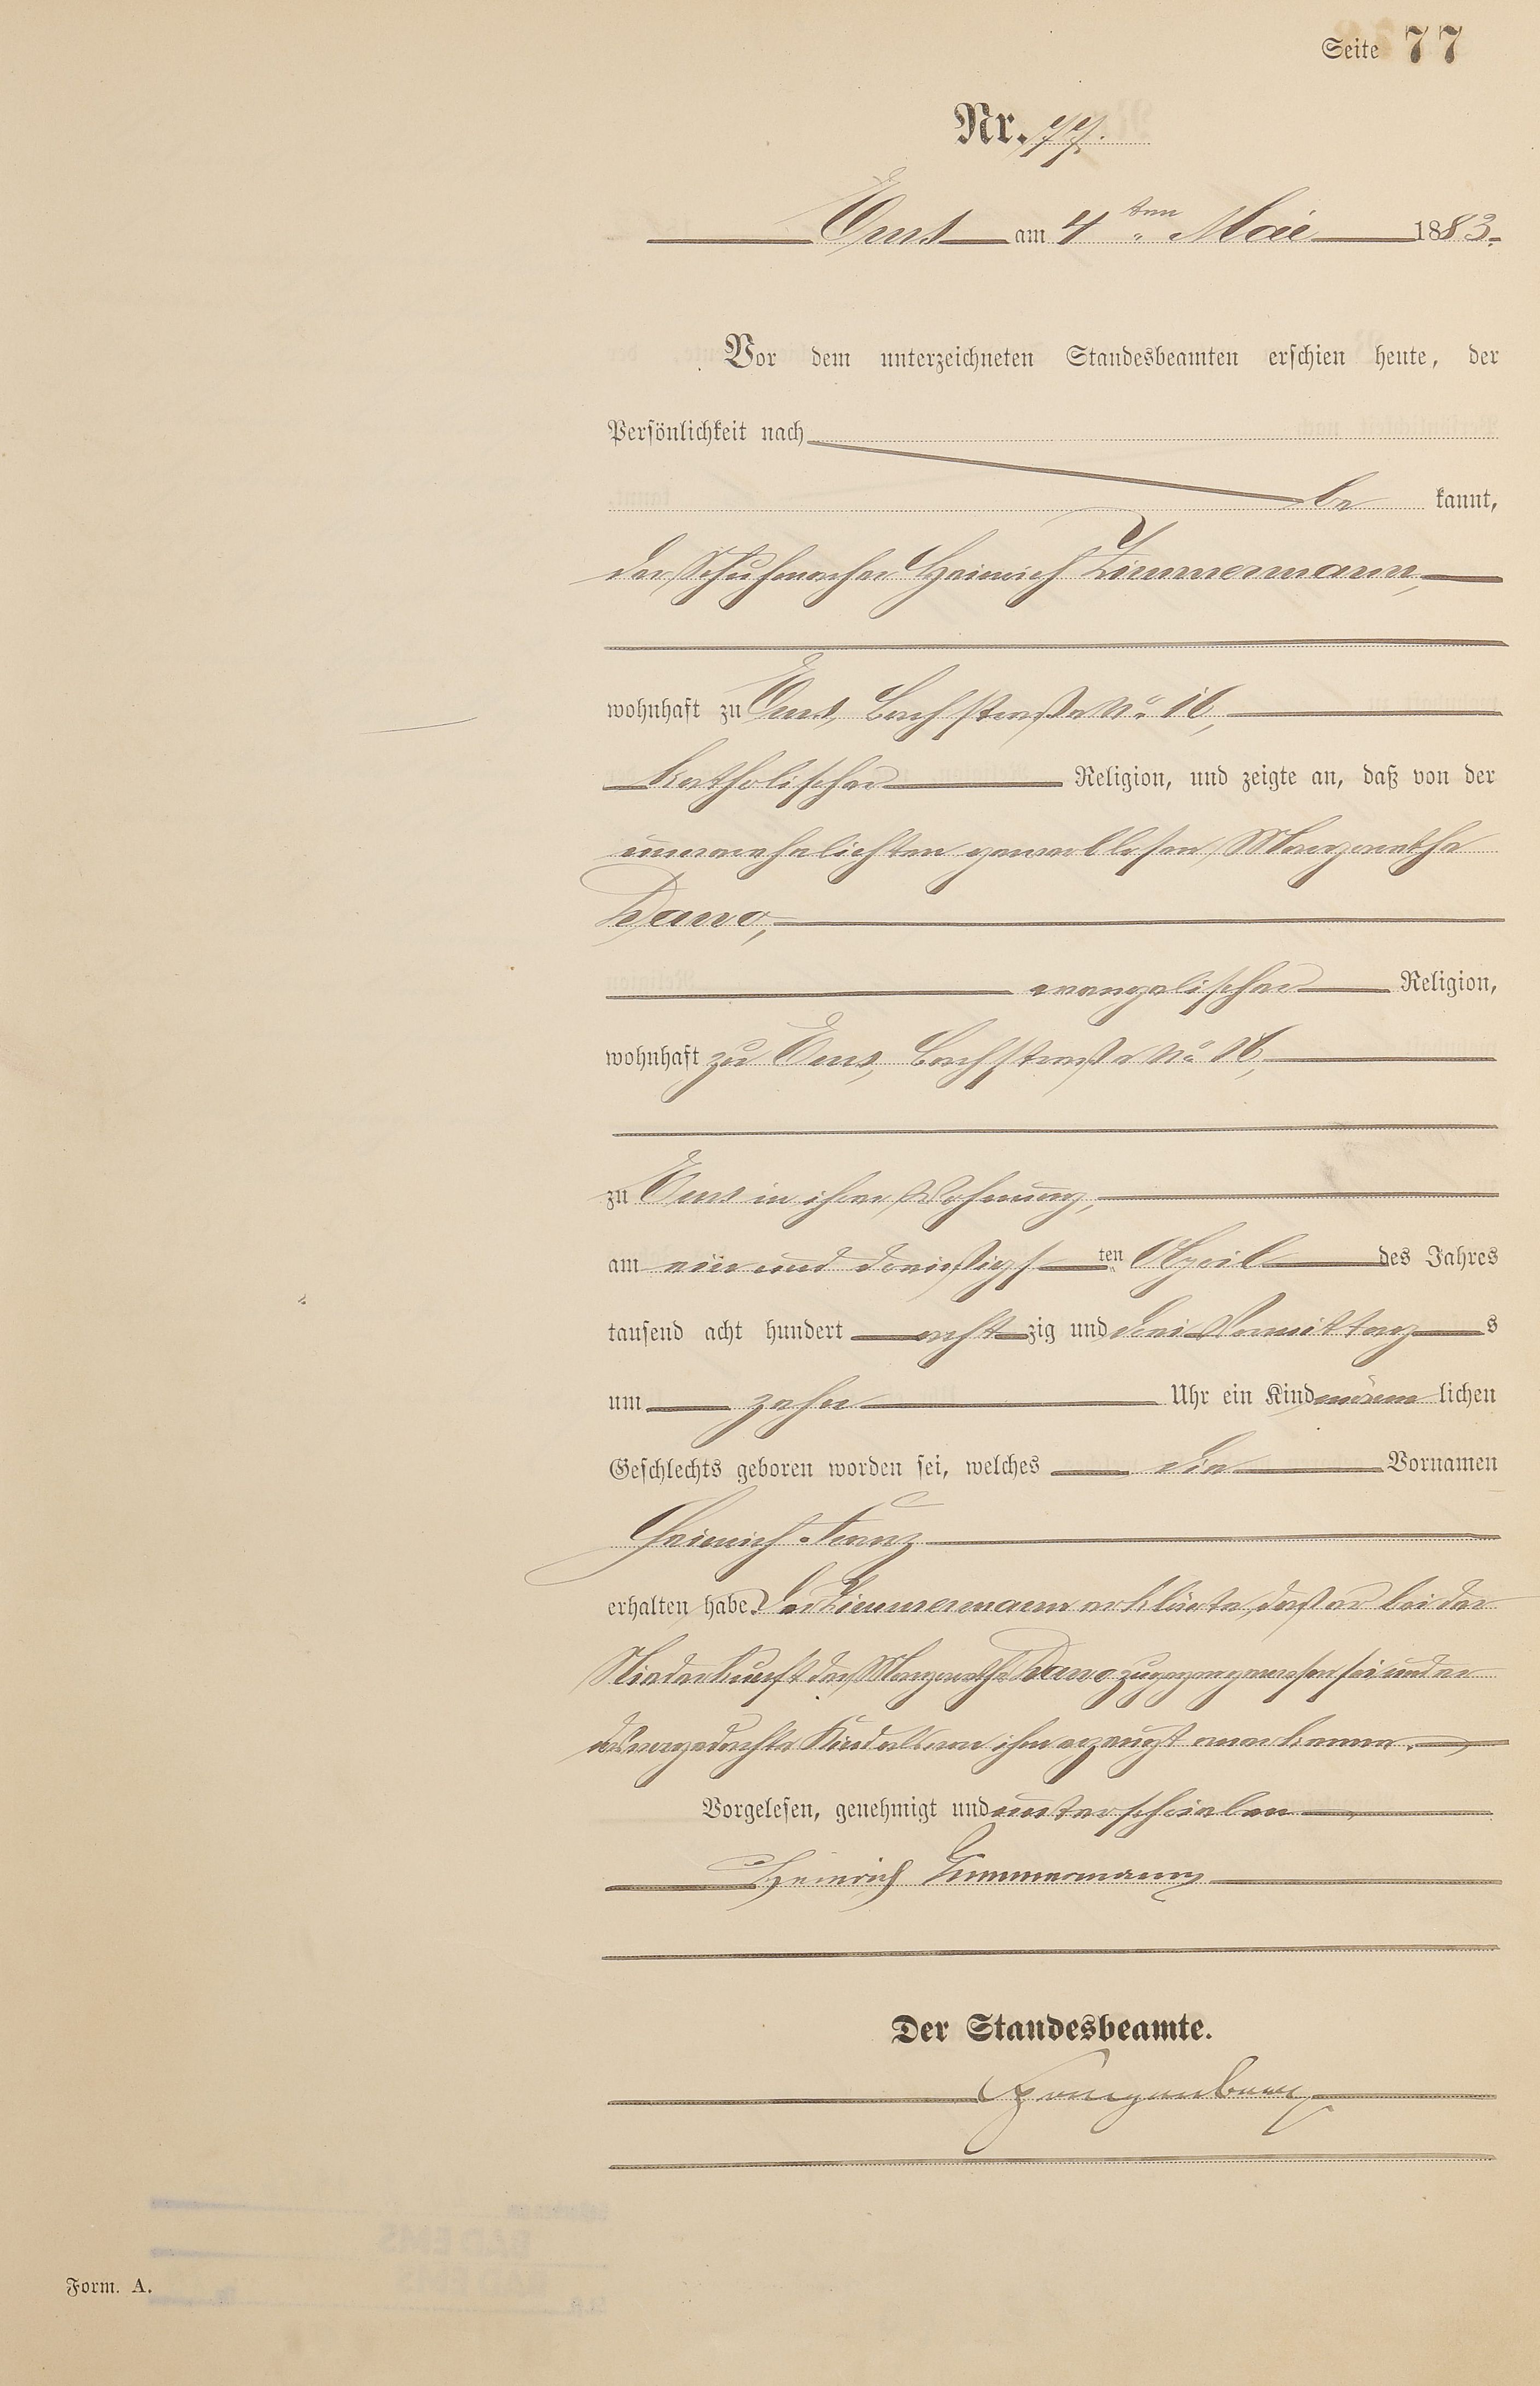 Seite 77
Nr. 77.
Ems am 4ten Mai 1883.
Vor dem unterzeichneten Standesbeamten erschien heute, der
Persönlichkeit nach
be kannt,
der Schuhmacher Heinrich Zimmermann,
wohnhaft zu Ems, Bachstraße No 16,
katholischer Religion, und zeigte an, daß von der
unverehelichten gewerblosen Margaretha
wohnhaft zu Ems, Bachstraße No 16,
evangelischer Religion,
zu Ems in ihrer Wohnung,
am ein und dreißigs ten April des Jahres
tausend acht hundert acht zig und drei Vormittag s
um zehn Uhr ein Kind männ lichen
Geschlechts geboren worden sei, welches die Vornamen
Heinrich Franz
erhalten habe. Der Zimmermann erklärte, daß er bei der
Niederkunft der Margaretha zugegen gewesen sei und er
das vorgedachte Kind als von ihm erzeugt anerkenne.
Vorgelesen, genehmigt und unterschrieben
Heinrich Zimmermann
Der Standesbeamte.
Form. A.